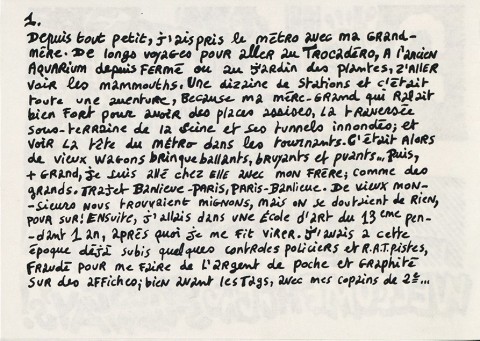 1.
Depuis tout petit, j'ais pris le métro avec ma grand-
mère. De longs voyages pour aller au Trocadéro, a l'ancien
Aquarium depuis fermé ou au jardin des plantes, z'aller
voir les mammouths. Une dizaine de stations et c'était
toute une aventure, because ma mère-grand qui ralait
bien fort pour avoir des places assises, la traversée
sous-terraine de la Seine et ses tunnels innondés; et
voir la tête du métro dans les tournants. C'était alors
de vieux wagons bringueballants, bruyants et puants... Puis,
+ grand, je suis allé chez elle avec mon frère; comme des
grands. Trajet Banlieue-Paris, Paris-Banlieue. De vieux mon-
-sieurs nous trouvaient mignons, mais on se doutaient de rien,
pour sur! Ensuite, j'allais dans une école d'art du 13 eme pen-
-dant 1 an, après quoi je me fit virer. J'avais a cette
époque déjà subis quelques controles policiers et R.A.T.Pistes,
fraudé pour me faire de l'argent de poche et graphité
sur des affiches; bien avant les tags, avec mes copains de 2e...